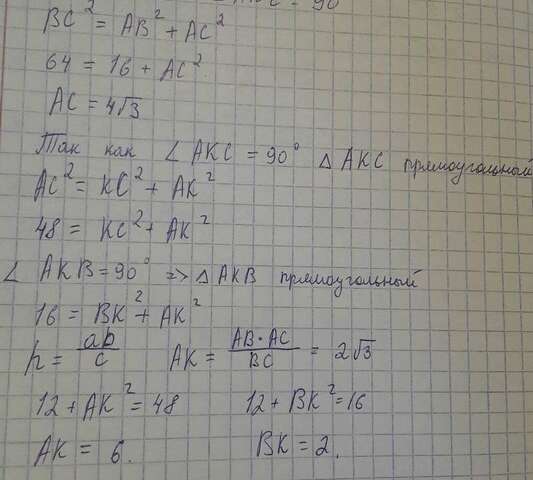 BC² = AB² + AC²
64 = 16 + AC²
AC = 4√3
Так как ∠AKC = 90° △AKC прямоугольный
AC² = KC² + AK²
48 = KC² + AK²
∠AKB = 90° => △AKB прямоугольный
16 = BK² + AK²
h = ab/c AK = AB·AC/BC = 2√3
12 + AK² = 48 12 + BK² = 16
AK = 6. BK = 2.